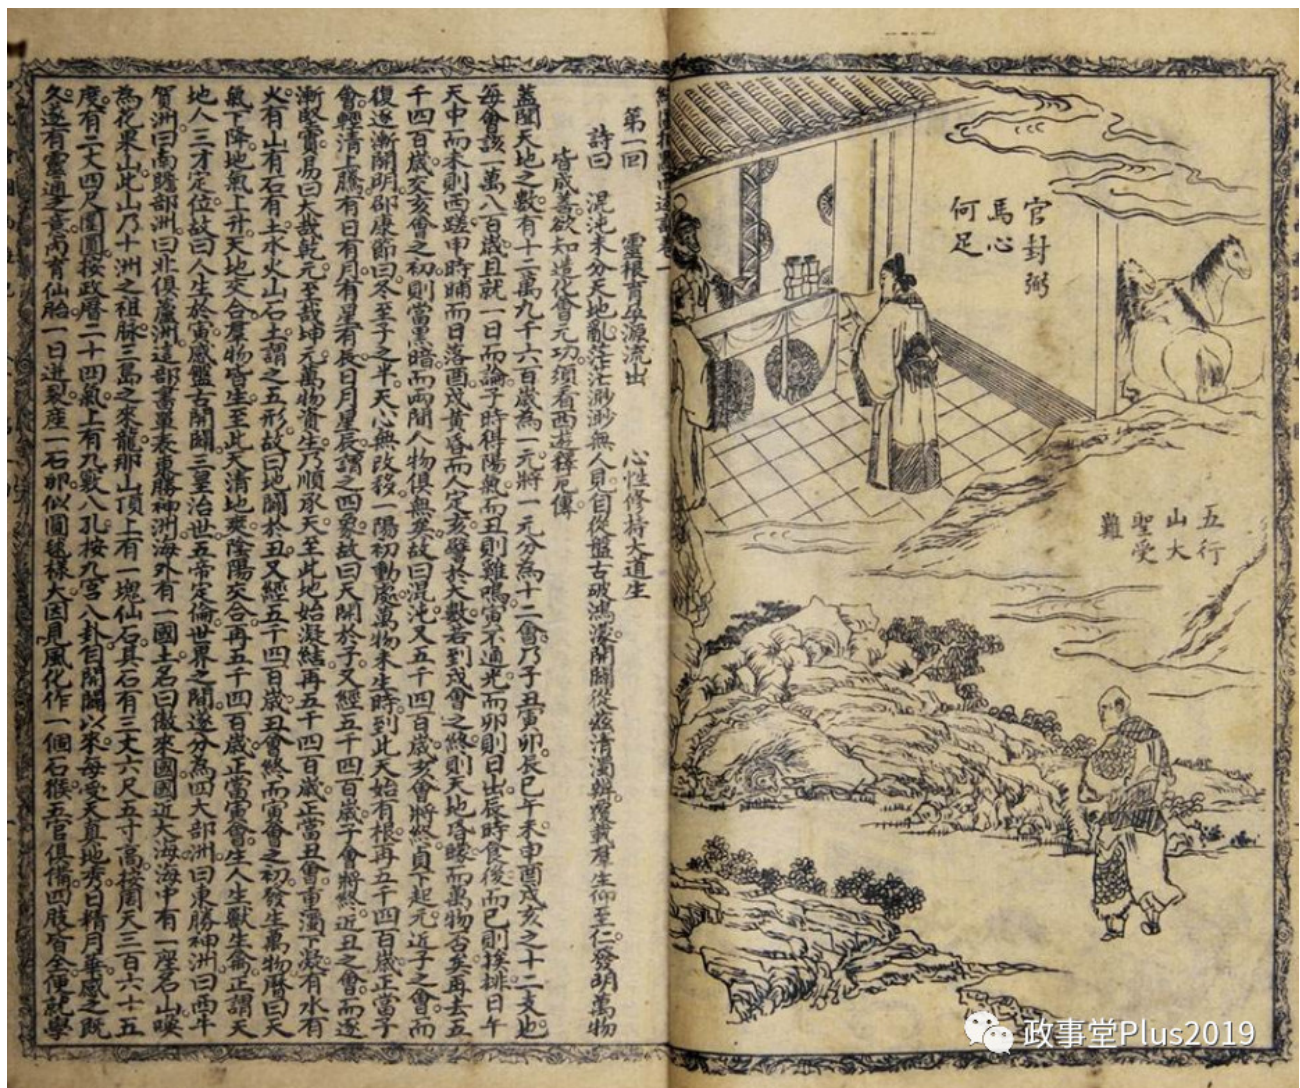 官封弼
馬心
何足
五行
山大
聖受
難
第一回 靈根育孕源流出 心性修持大道生
詩曰 混沌未分天地亂茫茫渺渺無人見自從盤古破鴻濛開闢從茲清濁辨覆載羣生仰至仁發明萬物
皆成善欲知造化會元功須看西遊釋厄傳
蓋聞天地之數有十二萬九千六百歲為一元將一元分為十二會乃子丑寅卯辰巳午未申酉戌亥之十二支也
每會該一萬八百歲且就一日而論子時得陽氣而丑則雞鳴寅不通光而卯則日出辰時食後而巳則挨排日午
天中而未則西蹉申時晡而日落酉戌黃昏而人定亥譬於大數若到戌會之終則天地昏曚而萬物否矣再去五
千四百歲交亥會之初則當黑暗而兩間人物俱無矣故曰混沌又五千四百歲亥會將終貞下起元近子之會而
復逐漸開明邵康節曰冬至子之半天心無改移一陽初動處萬物未生時到此天始有根再五千四百歲正當子
會輕清上騰有日有月有星有辰日月星辰謂之四象故曰天開於子又經五千四百歲子會將終近丑之會而逐
漸堅實易曰大哉乾元至哉坤元萬物資生乃順承天至此地始凝結再五千四百歲正當丑會重濁下凝有水有
火有山有石有土水火山石土謂之五形故曰地闢於丑又經五千四百歲丑會終而寅會之初發生萬物曆曰天
氣下降地氣上升天地交合羣物皆生至此天清地爽陰陽交合再五千四百歲正當寅會生人生獸生禽正謂天
地人三才定位故曰人生於寅感盤古開闢三皇治世五帝定倫世界之間遂分為四大部洲曰東勝神洲曰西牛
賀洲曰南贍部洲曰北俱蘆洲這部書單表東勝神洲海外有一國土名曰傲來國國近大海海中有一座名山喚
為花果山此山乃十洲之祖脉三島之來龍那山頂上有一塊仙石其石有三丈六尺五寸高按周天三百六十五
度有二丈四尺圍圓按政曆二十四氣上有九竅八孔按九宮八卦自開闢以來每受天真地秀日精月華感之既
久遂有靈通之意內育仙胎一日迸裂產一石卵似圓毬樣大因見風化作一個石猴五官俱備四肢皆全便就學
政事堂Plus2019